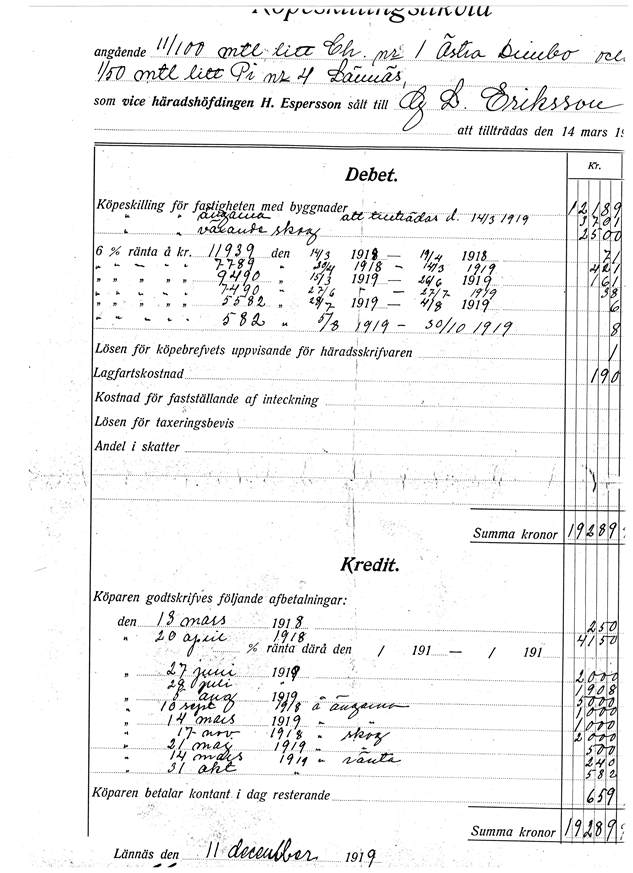 Köpeskillingslikvid
angående 11/100 mtl litt Ch. nr 1 Östra Dimbo och
1/50 mtl litt Pi nr 4 Lännäs,
som vice häradshöfdingen H. Espersson sålt till G. L. Eriksson
att tillträdas den 14 mars 19
Debet. Kr.
Köpeskilling för fastigheten med byggnader 12189
" " ängarna att tillträdas d. 14/3 1919 3701
" " växande skog 2500
6 % ränta å kr. 11939 den 14/3 1918 — 19/4 1918 71
" " " " " 7789 " 20/4 1918 — 14/3 1919 421
" " " " " 9490 " 15/3 1919 — 26/6 1919 161
" " " " " 7490 " 27/6 " — 27/7 1919 38
" " " " " 5582 " 28/7 1919 — 4/8 1919 6
" " " " " 582 " 5/8 1919 — 30/10 1919 8
Lösen för köpebrefvets uppvisande för häradsskrifvaren 1
Lagfartskostnad 190
Kostnad för fastställande af inteckning
Lösen för taxeringsbevis
Andel i skatter
Summa kronor 19289
Kredit.
Köparen godtskrifves följande afbetalningar:
den 13 mars 1918 250
" 20 april 1918 4150
% ränta därå den / 191 — / 191
" 27 juni 1919 2000
" 28 juli " 1908
" 5 aug 1919 5000
" 10 sept 1918 å ängarna 1000
" 14 mars 1919 " 1000
" 17 nov 1918 " skog 2000
" 21 maj 1919 " 500
" 14 mars 1919 " ränta 240
" 31 okt " 582
Köparen betalar kontant i dag resterande 659
Summa kronor 19289
Lännäs den 11 december 1919